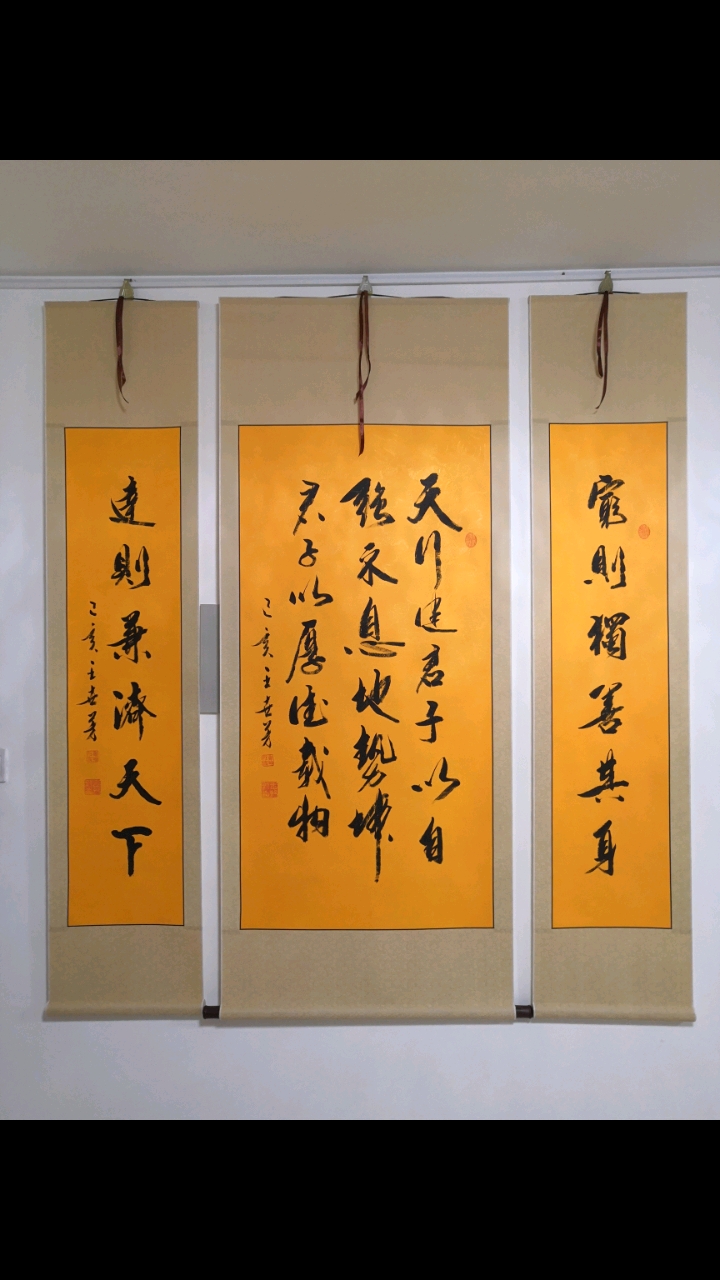 窮則獨善其身
天行健君子以自
強不息地勢坤
君子以厚德載物
己亥王世
達則兼濟天下
己亥王世